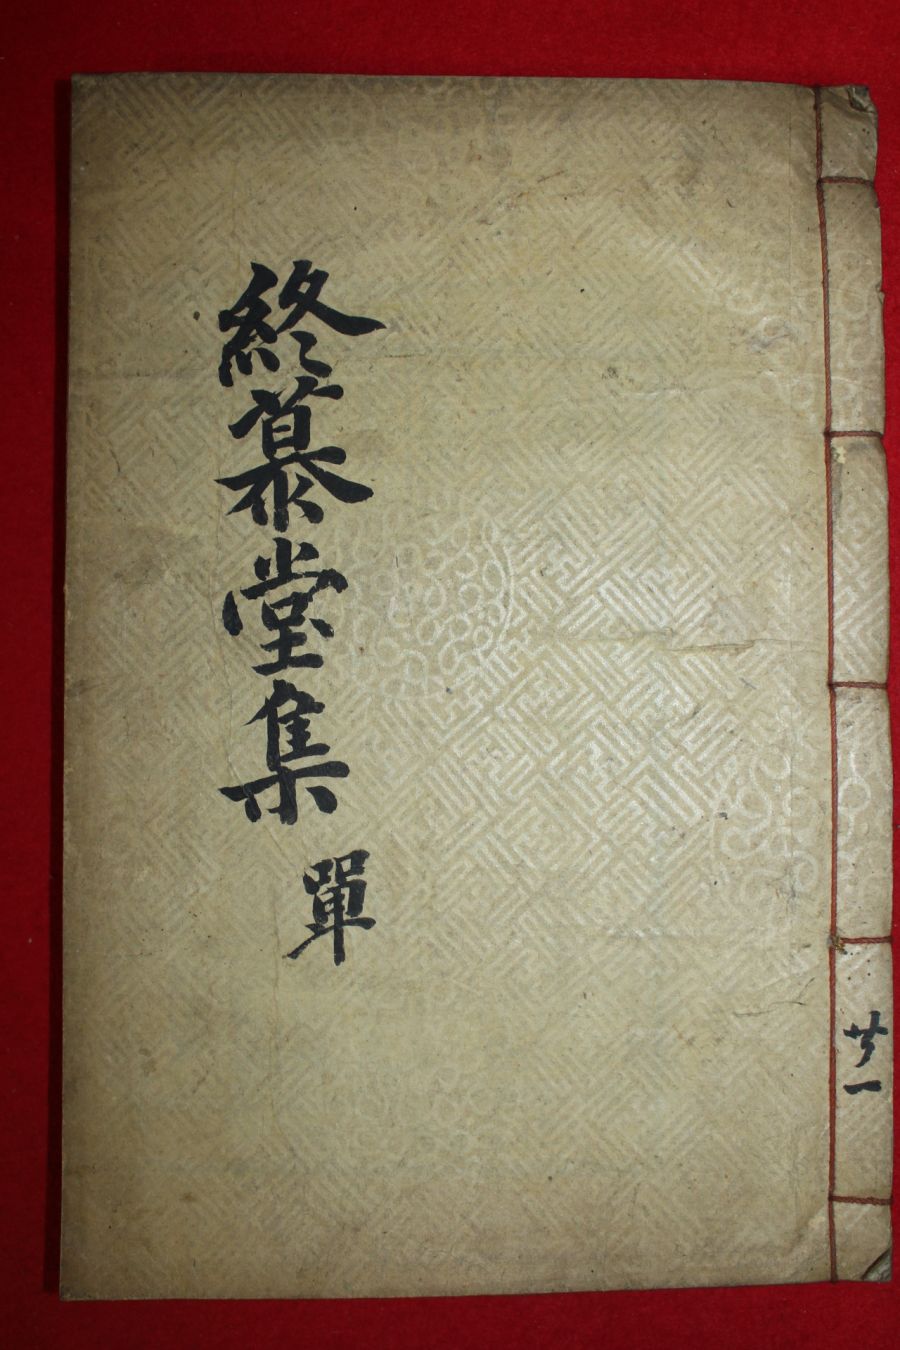 終慕堂集
單
共一